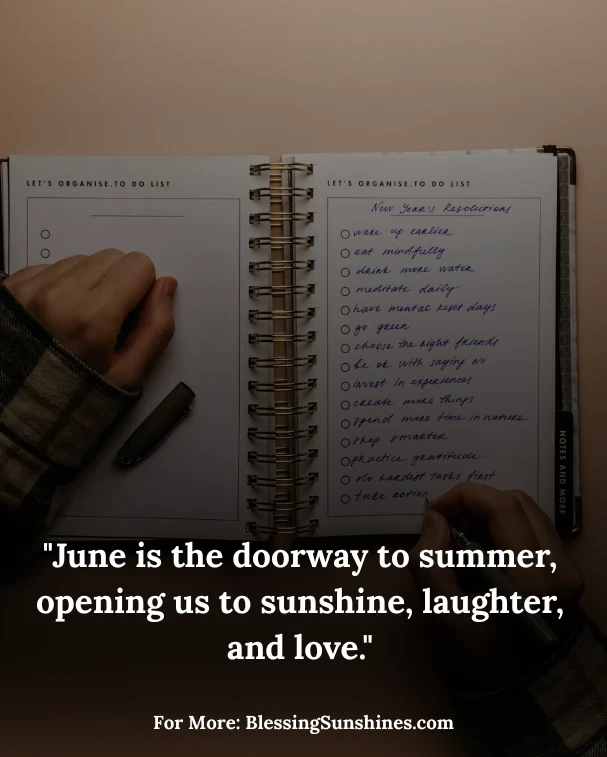 LET'S ORGANISE.TO DO LIST
LET'S ORGANISE.TO DO LIST
New Year's Resolutions
wake up earlier
eat mindfully
drink more water
meditate daily
have mental reset days
go green
choose the right friends
be ok with saying no
invest in experiences
create more things
spend more time in nature
shop smarter
practice gratitude
do hardest tasks first
take action
NOTES AND MORE
"June is the doorway to summer,
opening us to sunshine, laughter,
and love."
For More: BlessingSunshines.com